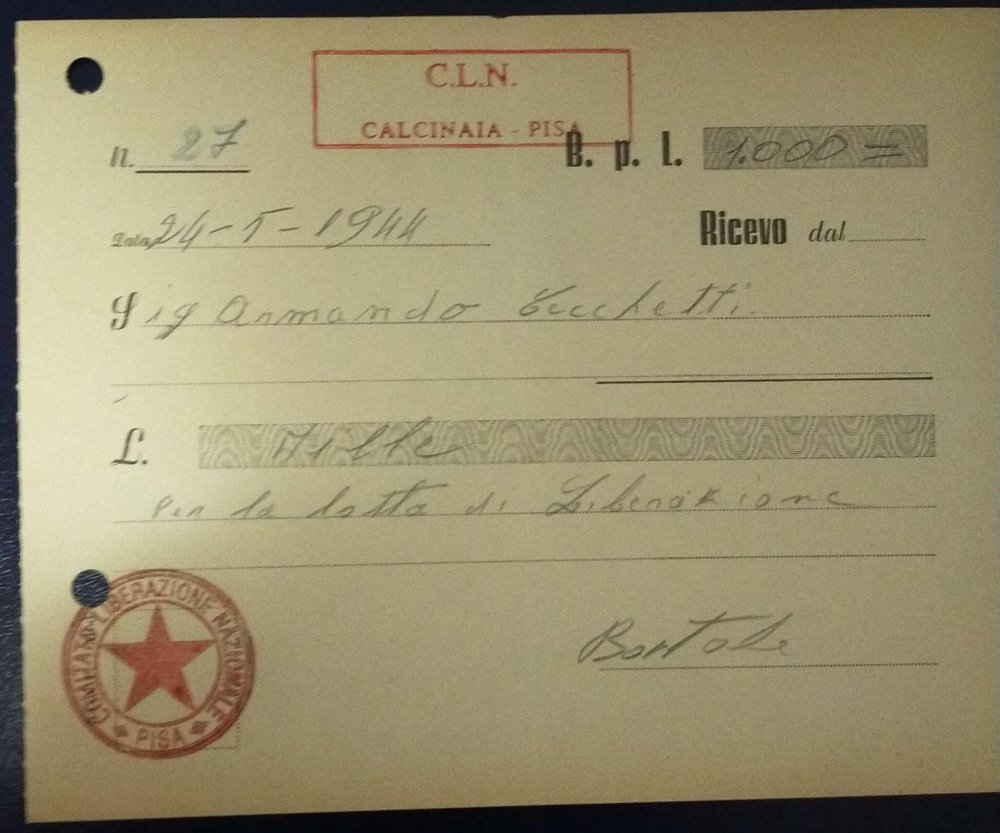 C.L.N.
CALCINAIA - PISA
n. 27
B. p. L. 1.000 =
Data 24-5-1944
Ricevo dal
Sig Armando
L. Mille
Per la lotta di Liberazione
COMITATO LIBERAZIONE NAZIONALE
PISA